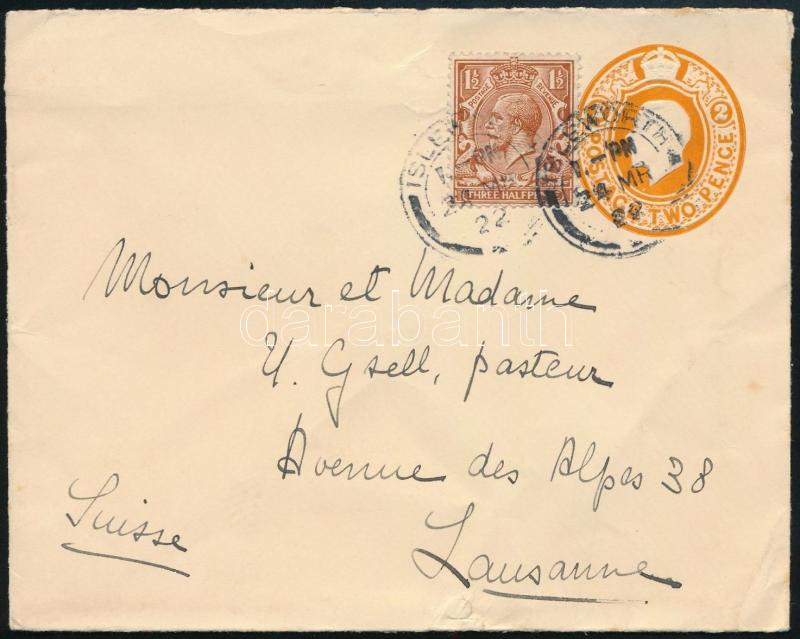 1½ 1½
POSTAGE REVENUE
THREE HALFPE
POSTAGE TWO PENCE 2
ISLEWORTH
1-PM
24 MR
22
ISLEWORTH
PM
24 MR
22
Monsieur et Madame
U. Gsell, pasteur
Avenue des Alpes 38
Lausanne
Suisse
darabanth